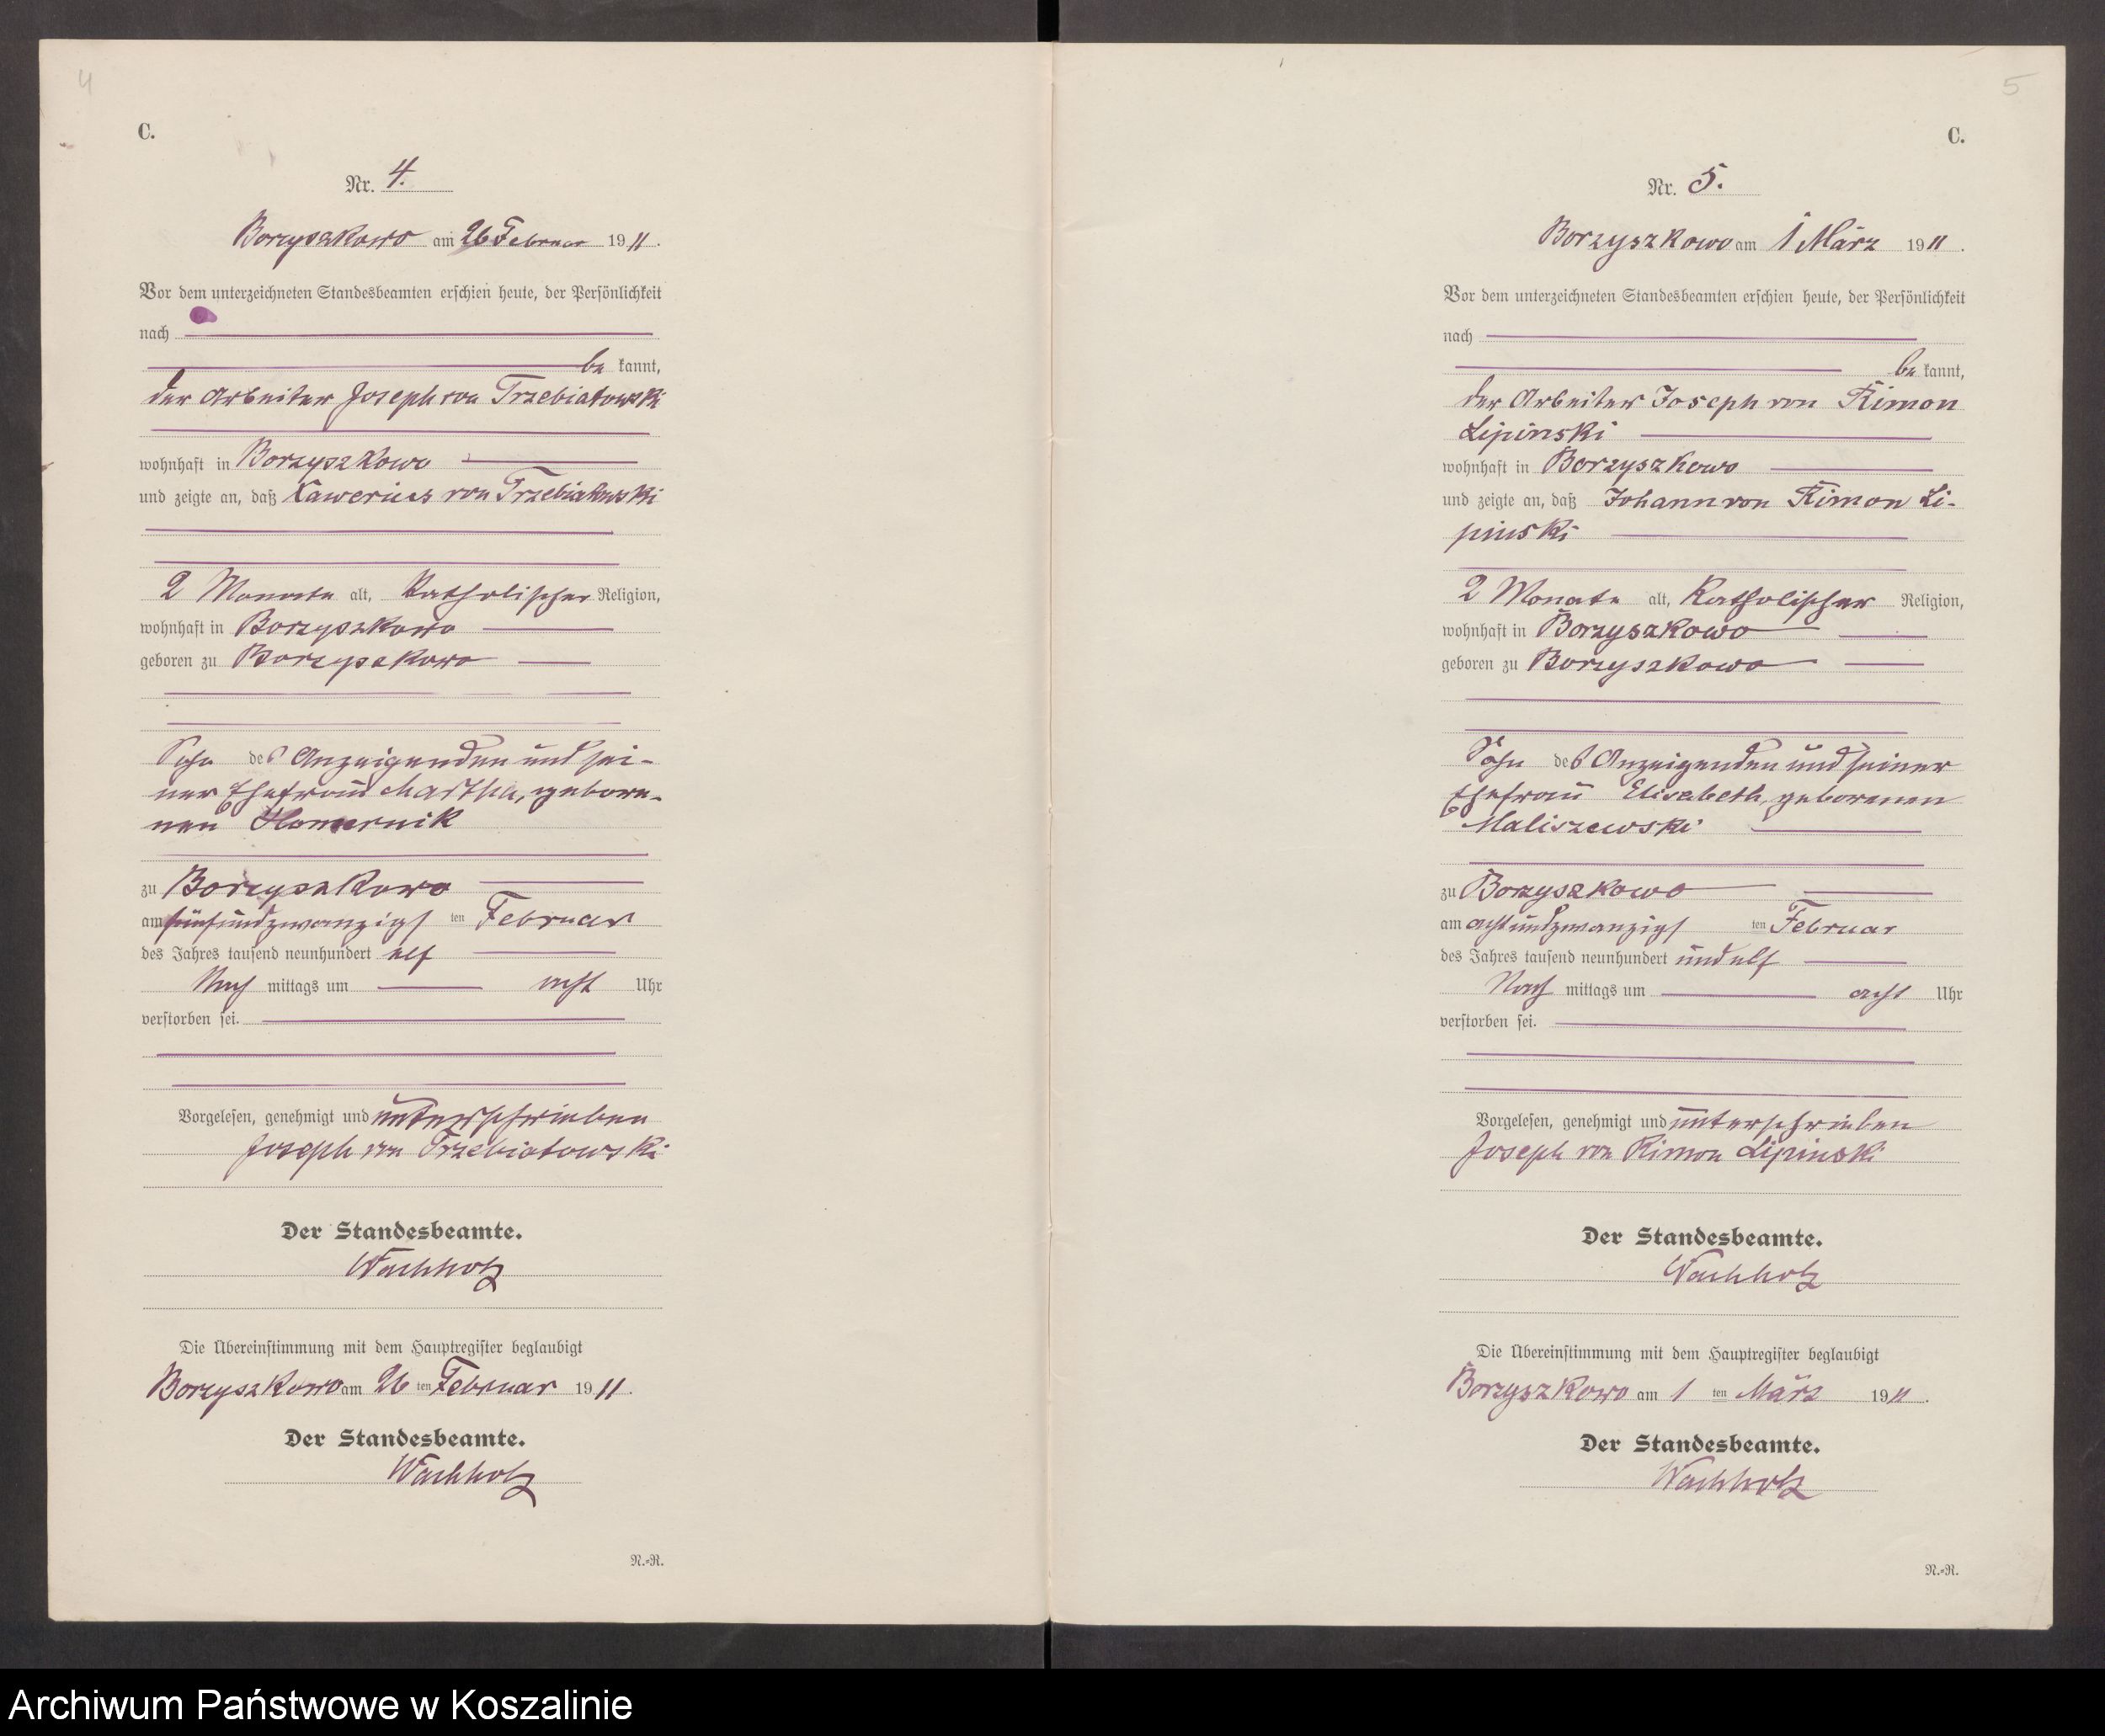 4
C.
Nr. 4.
Borzyszkowo am 26 Februar 1911.
Vor dem unterzeichneten Standesbeamten erschien heute, der Persönlichkeit
nach
be kannt,
der Arbeiter Joseph von Trzebiatowski
wohnhaft in Borzyszkowo
und zeigte an, daß Xawerius von Trzebiatowski
2 Monate alt, katholischer Religion,
wohnhaft in Borzyszkowo
geboren zu Borzyszkowo
Sohn des Anzeigenden und sei-
ner Ehefrau Martha, gebore-
nen
zu Borzyszkowo
am fünfundzwanzigsten Februar
des Jahres tausend neunhundert elf
Nach mittags um acht Uhr
verstorben sei.
Vorgelesen, genehmigt und unterschrieben
Joseph von Trzebiatowski
Der Standesbeamte.
Wachholz
Die Übereinstimmung mit dem Hauptregister beglaubigt
Borzyszkowo am 26 ten Februar 1911.
Der Standesbeamte.
Wachholz
N.=R.
5
C.
Nr. 5.
Borzyszkowo am 1 März 1911.
Vor dem unterzeichneten Standesbeamten erschien heute, der Persönlichkeit
nach
be kannt,
der Arbeiter Joseph von Kimon
Lipinski
wohnhaft in Borzyszkowo
und zeigte an, daß Johann von Kimon Li-
pinski
2 Monate alt, katholischer Religion,
wohnhaft in Borzyszkowo
geboren zu Borzyszkowo
Sohn des Anzeigenden und seiner
Ehefrau Elisabeth, geborenen
Maliszewski
zu Borzyszkowo
am achtundzwanzigsten Februar
des Jahres tausend neunhundert und elf
Nach mittags um acht Uhr
verstorben sei.
Vorgelesen, genehmigt und unterschrieben
Joseph von Kimon Lipinski
Der Standesbeamte.
Wachholz
Die Übereinstimmung mit dem Hauptregister beglaubigt
Borzyszkowo am 1 ten März 1911.
Der Standesbeamte.
Wachholz
N.=R.
Archiwum Państwowe w Koszalinie